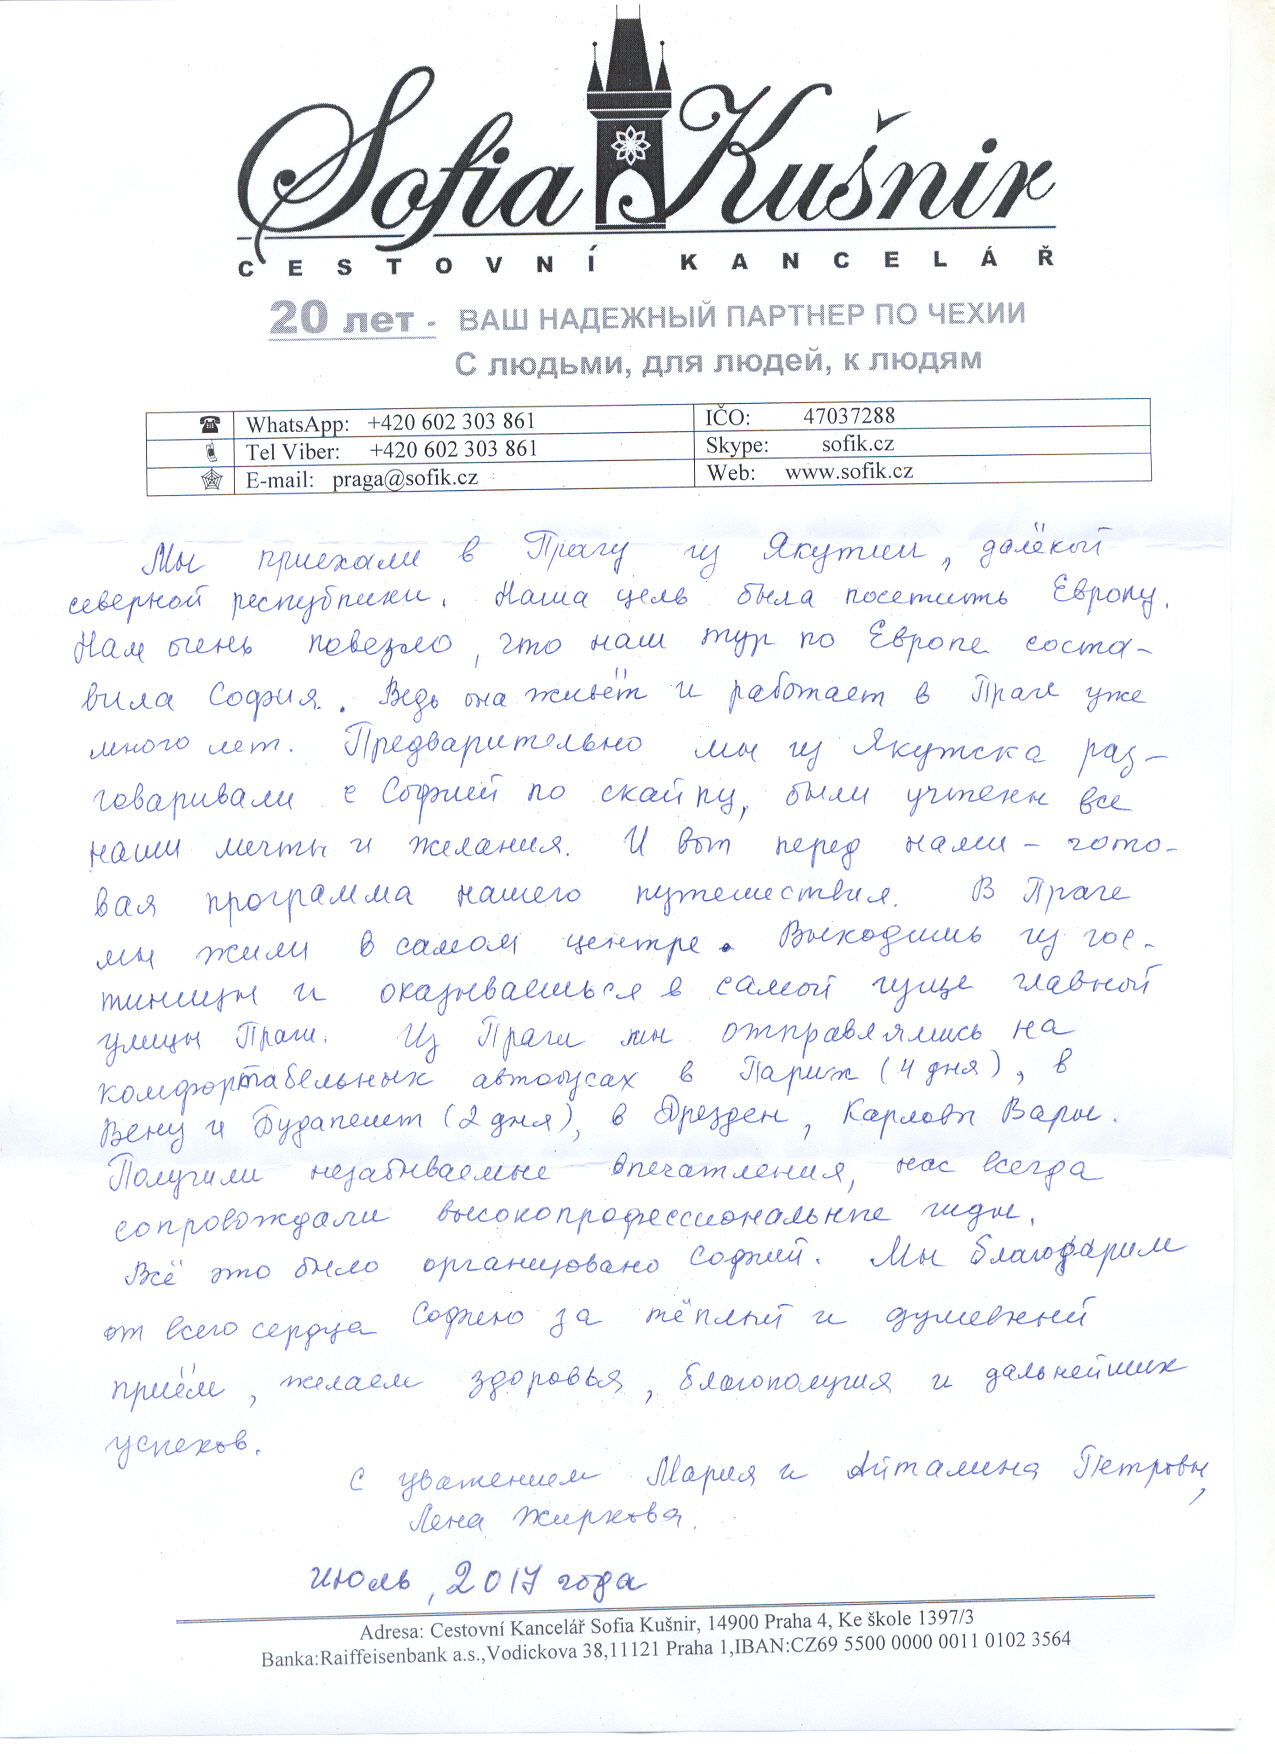 Sofia Kušnir
CESTOVNÍ KANCELÁŘ
20 лет - ВАШ НАДЕЖНЫЙ ПАРТНЕР ПО ЧЕХИИ
С людьми, для людей, к людям
WhatsApp: +420 602 303 861 IČO: 47037288
Tel Viber: +420 602 303 861 Skype: sofik.cz
E-mail: praga@sofik.cz Web: www.sofik.cz
Мы приехали в Прагу из Якутии, далёкой
северной республики. Наша цель была посетить Европу.
Нам очень повезло, что наш тур по Европе соста-
вила София. Ведь она живёт и работает в Праге уже
много лет. Предварительно мы из Якутска раз-
говаривали с Софией по скайпу, были учтены все
наши мечты и желания. И вот перед нами - гото-
вая программа нашего путешествия. В Праге
мы жили в самом центре. Выходишь из гос-
тиницы и оказываешься в самой гуще главной
улицы Праги. Из Праги мы отправлялись на
комфортабельных автобусах в Париж (4 дня), в
Вену и Будапешт (2 дня), в Дрезден, Карловы Вары.
Получили незабываемые впечатления, нас всегда
сопровождали высокопрофессиональные гиды.
Всё это было организовано Софией. Мы благодарим
от всего сердца Софию за тёплый и душевный
приём, желаем здоровья, благополучия и дальнейших
успехов.
С уважением Мария и Айталина Петровы,
Лена Жиркова.
Июль, 2017 года
Adresa: Cestovní Kancelář Sofia Kušnir, 14900 Praha 4, Ke škole 1397/3
Banka:Raiffeisenbank a.s.,Vodickova 38,11121 Praha 1,IBAN:CZ69 5500 0000 0011 0102 3564